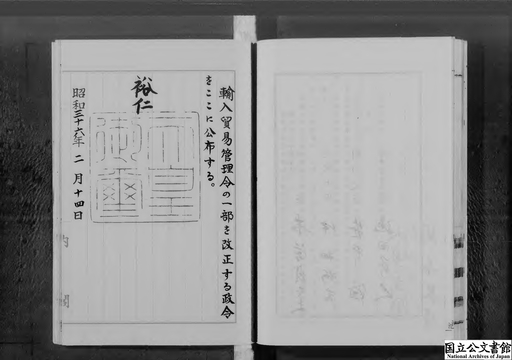 輸入貿易管理令の一部を改正する政令
をここに公布する。
裕仁
天皇
御璽
昭和三十六年二月十四日
内閣
国立公文書館
National Archives of Japan